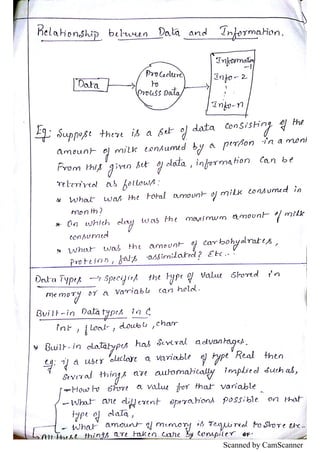 Relationship between Data and Information.
Data
Procedure
to
Process Data
Informatn
-1
Info-2
Info-n
Eg: Suppose there is a set of data consisting of the
amount of milk consumed by a person in a mont
From this given set of data, information can be
reterived as follows:
* What was the total amount of milk consumed in
month?
* On which day was the maximum amount of milk
consumed
* What was the amount of carbohydrates,
Proteins, fats assimilated? Etc...
Data Types → Specifies the type of value stored in
memory or a variable can hold.
Built-in Datatypes in C
Int, float, double, char
* Built-in datatypes has several advantages.
eg: if a user declare a variable of type Real then
several things are automatically implied such as,
- How to store a value for that variable
- What are different operations possible on that
type of data,
- What amount of memory is required to store etc.
All these things are taken care by compiler of
Scanned by CamScanner